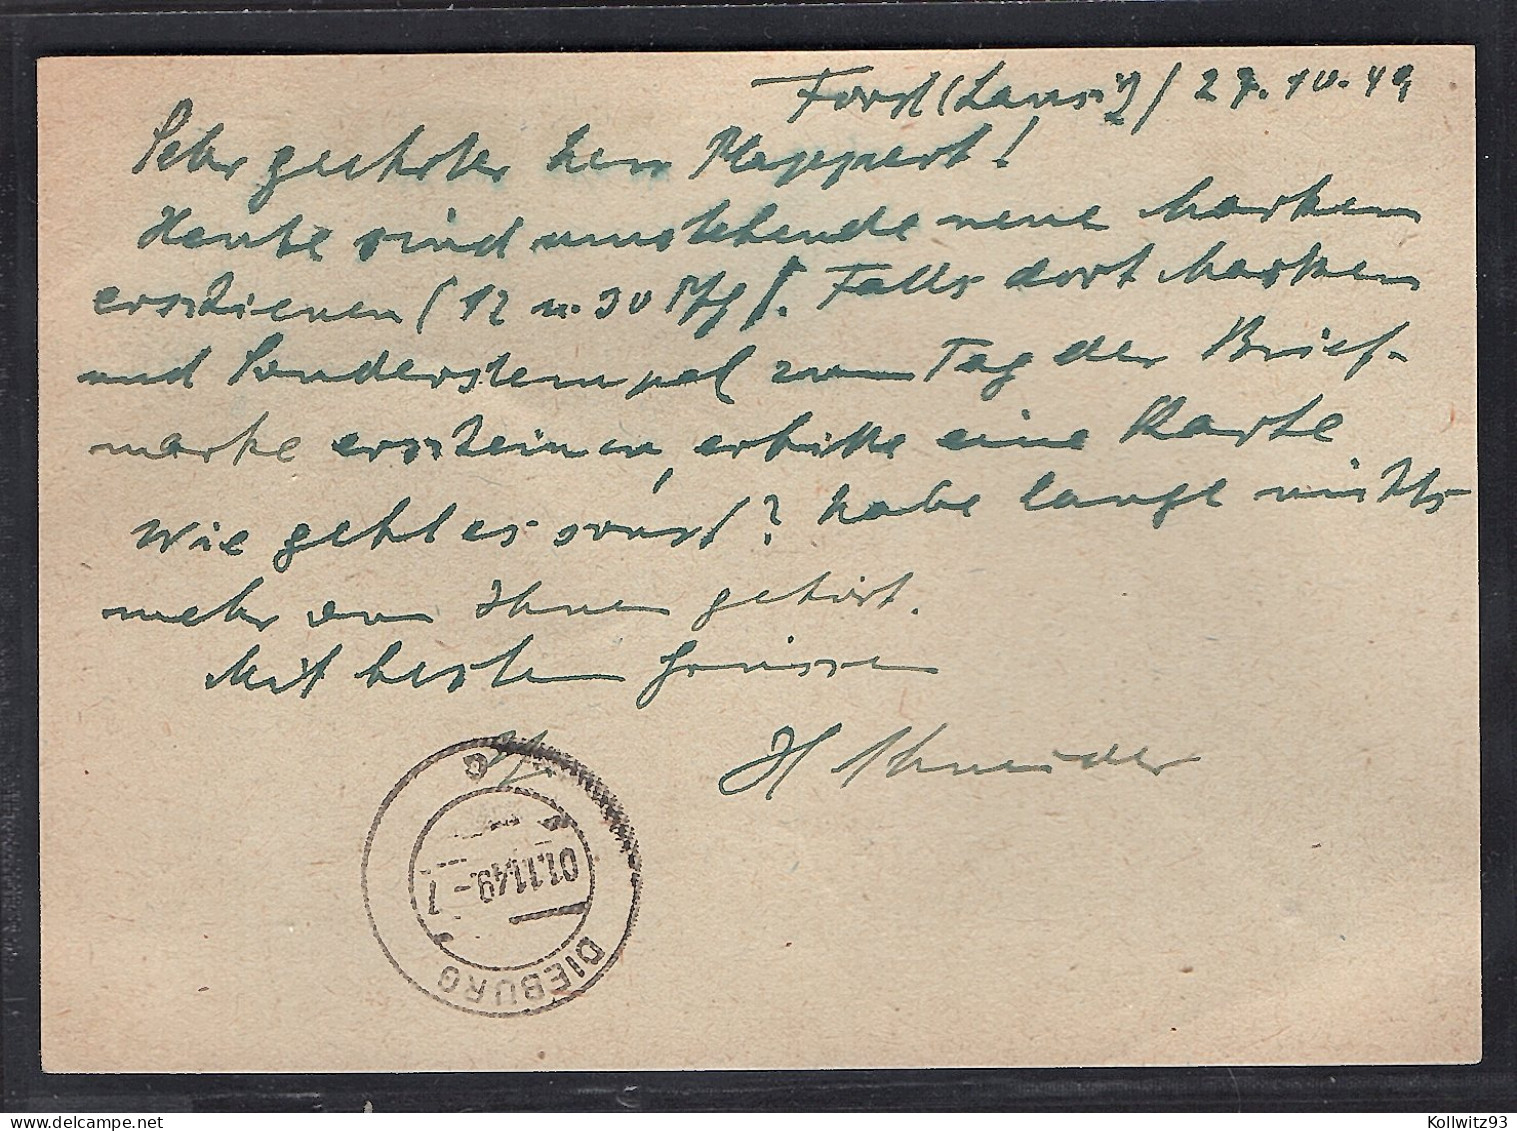 Forst (Lausitz) 27.10.49
Sehr geehrter Herr Plappert!
Heute sind umstehende neue Marken
erschienen (12 u. 30 Pfg). Falls dort Marken
und Sonderstempel zum Tag der Brief-
marke erscheinen, erbitte eine Karte
Wie geht es sonst? habe lange nichts
mehr von Ihnen gehört.
Mit besten Grüssen
H Schneider
DIEBURG
01.11.49 - 7
Kollwitz93